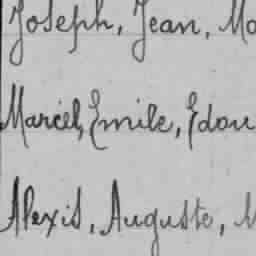 Joseph, Jean, Ma
Marcel, Emile, Edou
Alexis, Auguste, M